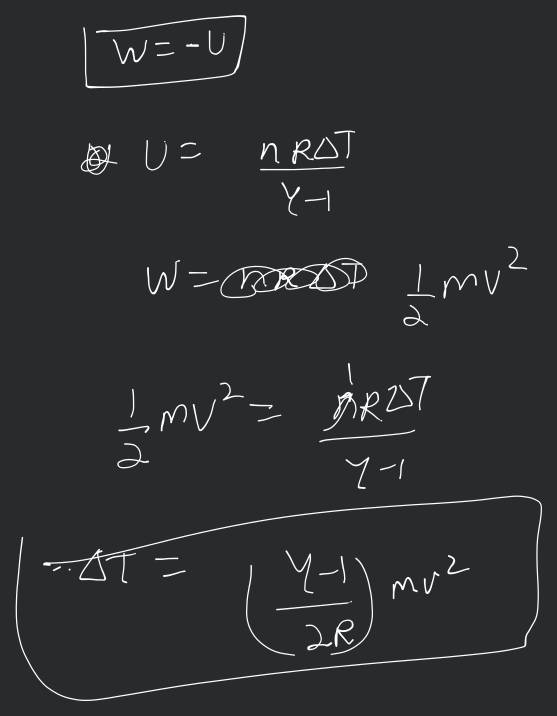 W = -U
U = nRΔT / γ-1
W = 1/2 mv²
1/2 mv² = 1 RΔT / γ-1
ΔT = (γ-1 / 2R) mv²